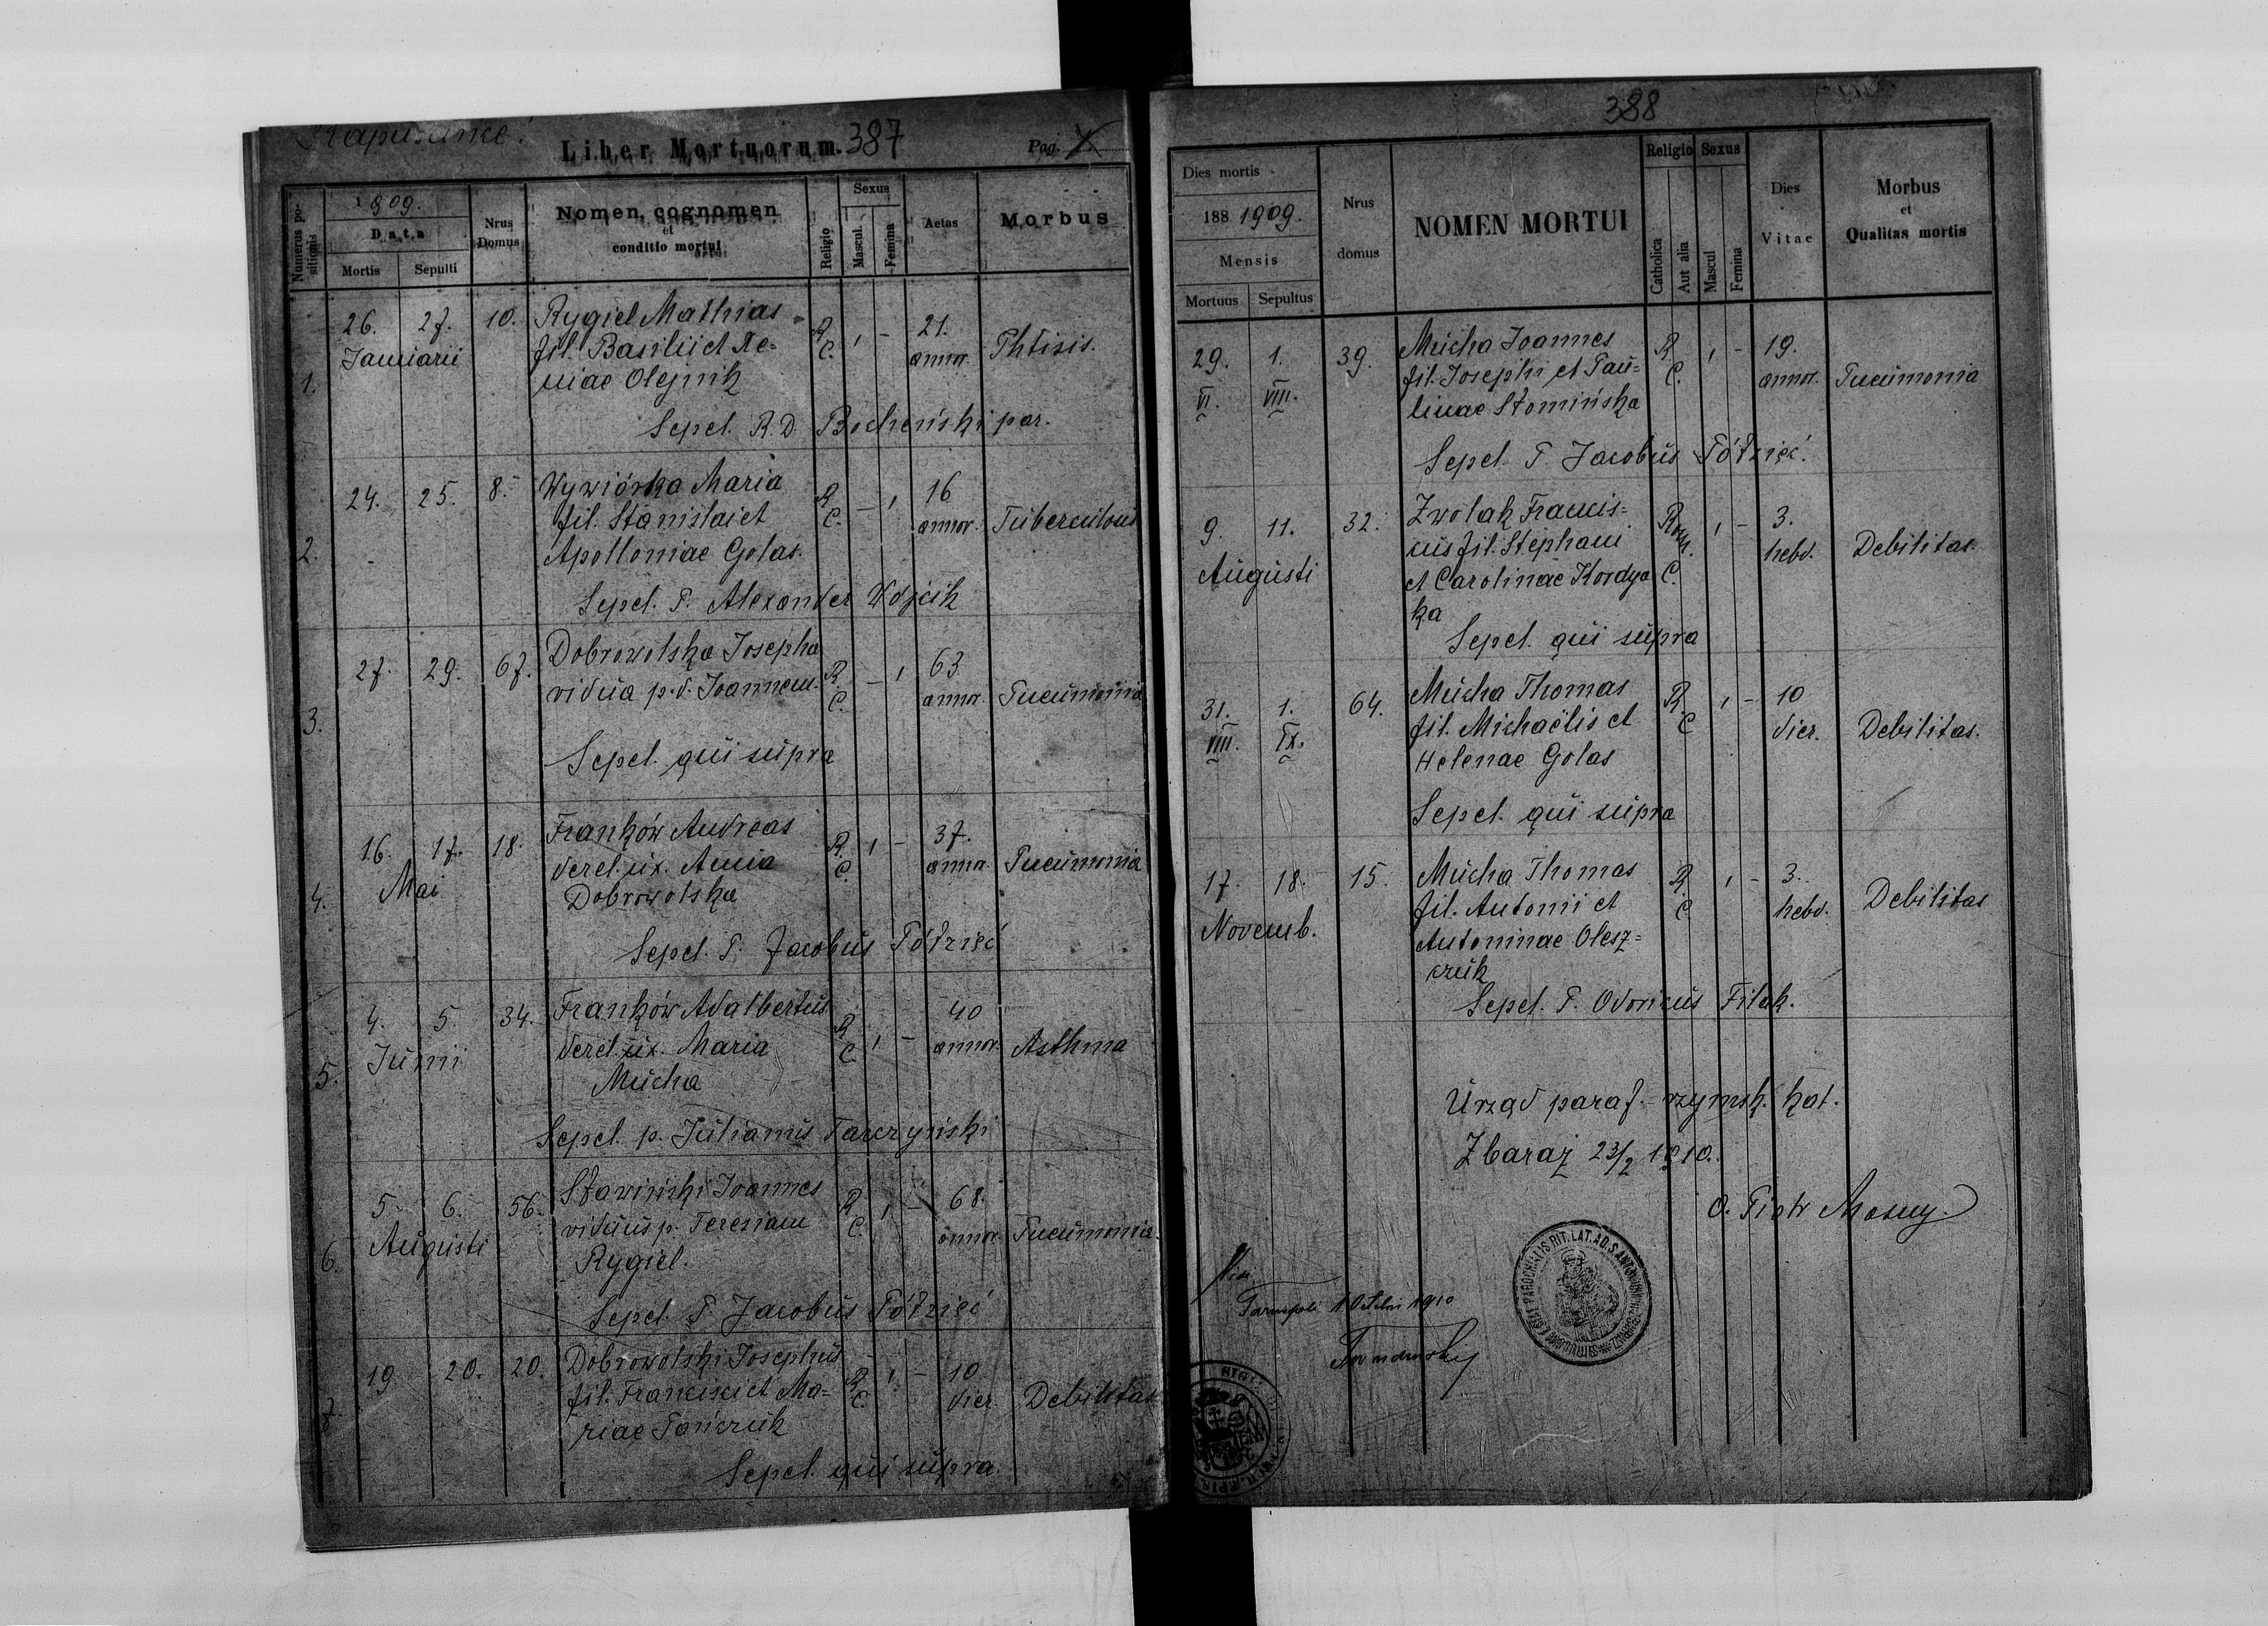 Liber Mortuorum. 387
Pag.
Numerus positionis
1909.
Data
Mortis
Sepulti
Nrus Domus
Nomen, cognomen
et
conditio mortui
Religio
Sexus
Mascul.
Femina
Aetas
Morbus
1. 26. 27. 10. Rygiel Mathias R. C. 1 - 21. annor. Phtisis.
Januarii
fil. Basilii et Xe=
niae Olejnik
Sepel. R. D. Bocheński par.
2. 24. 25. 8. Wywiórka Maria R. C. - 1 16 annor. Tuberculosis
fil. Stanislai et
Apolloniae Golas.
Sepel. P. Alexander Wójcik
3. 27. 29. 67. Dobrowolska Josepha R. C. - 1 63 annor. Pneumonia
vidua p. d. Joannem.
Sepel. qui supra
4. 16. 17. 18. Franków Andreas R. C. 1 - 37. annor. Pneumonia
Mai
derel. ux. Anna
Dobrowolska
Sepel. P. Jacobus Półzięć
5. 4. 5. 34. Franków Adalbertus R. C. 1 - 40 annor. Asthma
Junii
derel. ux. Maria
Mucha
Sepel. p. Julianus Tarczyński
6. 5. 6. 56. Sławiński Joannes R. C. 1 - 68. annor. Pneumonia.
Augusti
viduus p. Teresiam
Rygiel.
Sepel. P. Jacobus Półzięć
7. 19 20. 20. Dobrowolski Josephus R. C. 1 - 10 dier. Debilitas
fil. Francisci et Ma=
riae Pańczuk
Sepel. qui supra.
388
Dies mortis
188 1909.
Mensis
Mortuus
Sepultus
Nrus
domus
NOMEN MORTUI
Religio
Catholica
Aut alia
Sexus
Mascul
Femina
Dies
Vitae
Morbus
et
Qualitas mortis
29. VI. 1. VIII. 39. Mucha Joannes R. C. 1 - 19. annor. Pneumonia
fil. Josephi et Pau=
linae Słomińska
Sepel. P. Jacobus Półzięć.
9. 11. 32. Zwolak Francis= Rom. C. 1 - 3. hebd. Debilitas.
Augusti
cus fil. Stephani
et Carolinae Kordya
ka
Sepel. qui supra
31. VIII. 1. IX. 64. Mucha Thomas R. C 1 - 10 dier. Debilitas.
fil. Michaëlis et
Helenae Golas
Sepel. qui supra
17. 18. 15. Mucha Thomas R. C. 1 - 3. hebd. Debilitas
Novemb.
fil. Antonii et
Antoninae Olesz=
czuk
Sepel. P. Odoricus Filak.
Urząd paraf. rzymsk. kat.
Zbaraż 23/2 1910.
O. Piotr
1910